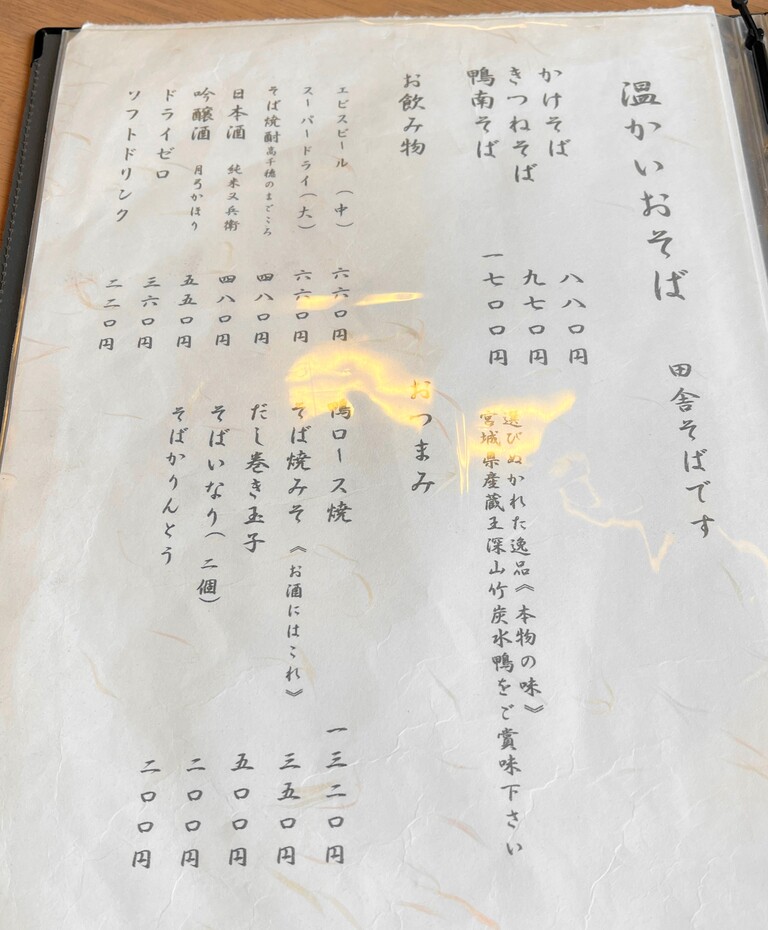 温かいおそば 田舎そばです
かけそば 八八〇円
きつねそば 九七〇円
鴨南そば 一七〇〇円
選びぬかれた逸品《本物の味》
宮城県産蔵王深山竹炭水鴨をご賞味下さい
お飲み物
エビスビール（中） 六六〇円
スーパードライ（大） 六六〇円
そば焼酎高千穂のまごころ 四八〇円
日本酒 純米又兵衛 四八〇円
吟醸酒 月弓かほり 五五〇円
ドライゼロ 三六〇円
ソフトドリンク 二二〇円
おつまみ
鴨ロース焼 一三二〇円
そば焼みそ《お酒にはこれ》 三五〇円
だし巻き玉子 五〇〇円
そばいなり（二個） 二〇〇円
そばかりんとう 二〇〇円